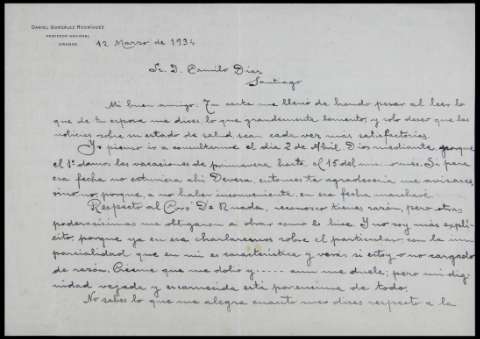 DANIEL GONZÁLEZ RODRÍGUEZ
PROFESOR NACIONAL
ORENSE
12 Marzo de 1934
Sr. D. Camilo Díaz
Santiago
Mi buen amigo: Tu carta me llenó de hondo pesar al leer lo
que de tu esposa me dices lo que grandemente lamento, y solo deseo que las
noticias sobre su estado de salud sean cada vez más satisfactorias.
Yo pienso ir a el día 2 de Abril, Dios mediante, porque
el 1º damos las vacaciones de primavera hasta el 15 del mismo mes. Si para
esa fecha no estuviera ahí Devesa, entonces te agradecería me avisases,
sino no, porque, a no haber inconveniente, en esa fecha marcharé.
Respecto al De Rueda, reconozco tienes razón, pero otras
poderosísimas me obligaron a obrar como lo hice. Y no soy más explí-
cito, porque ya en esa charlaremos sobre el particular con la im-
parcialidad que en mi es característica y verás si estoy o no cargado
de razón. Créeme que me dolió y..... aun me duele; pero mi dig-
nidad vejada y escarnecida está por encima de todo.
No sabes lo que me alegra cuanto me dices respecto a la